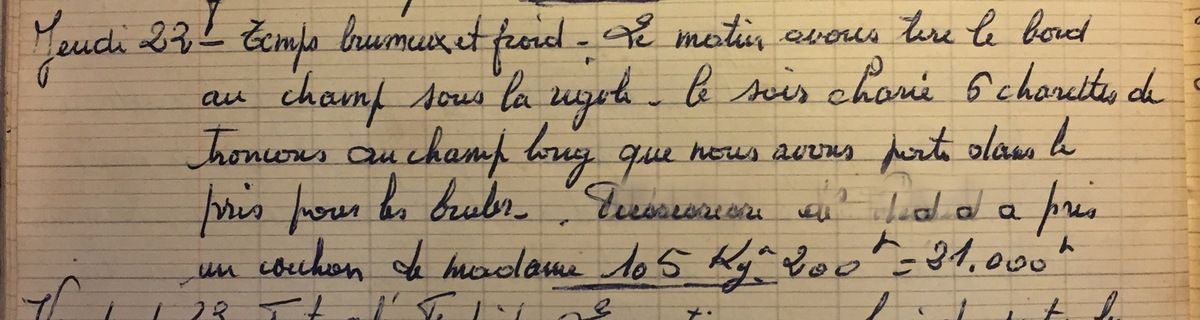 Jeudi 22 - Temps brumeux et froid - Le matin avons tire le bord
au champ sous la rigole - le soir charié 6 charettes de
troncons au champ long que nous avons porte dans le
pris pour les bruler -
a pris
un cochon de madame 105 Kg à 200 f = 21.000 f